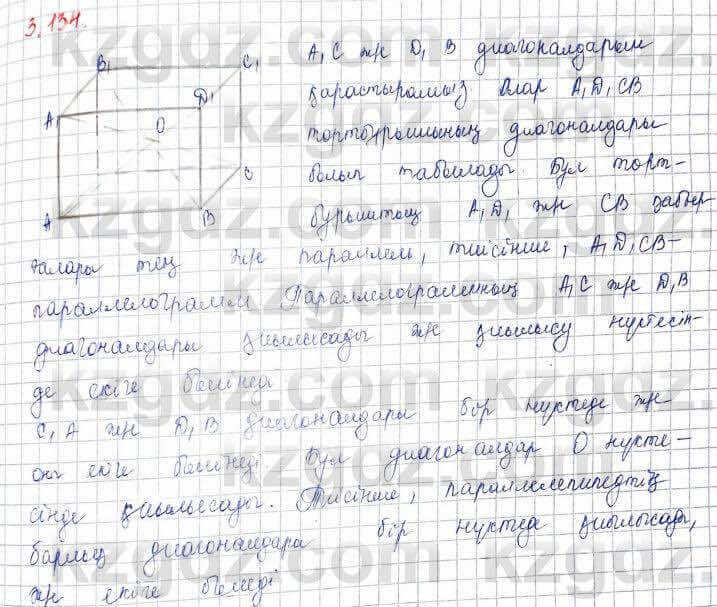 3.134.
B₁ C₁
A₁ D₁
O
C
A B
A₁C жн D₁B диагоналдарын
қарастырамыз Олар A₁D₁CB
төртбұрышының диагоналдары
болып табылады. Бұл төрт-
бұрыштың A₁D₁ жн CB қабыр-
ғалары тең жн параллель, тиісінше, A₁D₁CB-
параллелограмм Параллелограммның A₁C жн D₁B
диагоналдары қиылысады жн қиылысу нүктесін-
де екіге бөлінеді
C₁A жн D₁B диагоналдары бір нүктеде жн
оны екіге бөлінеді Бұл диагоналдар O нүкте-
сінде қиылысады. Тиісінше, параллелепипедтің
барлық диагоналдары бір нүктеде қиылысады,
жн екіге бөледі
kzgdz.com